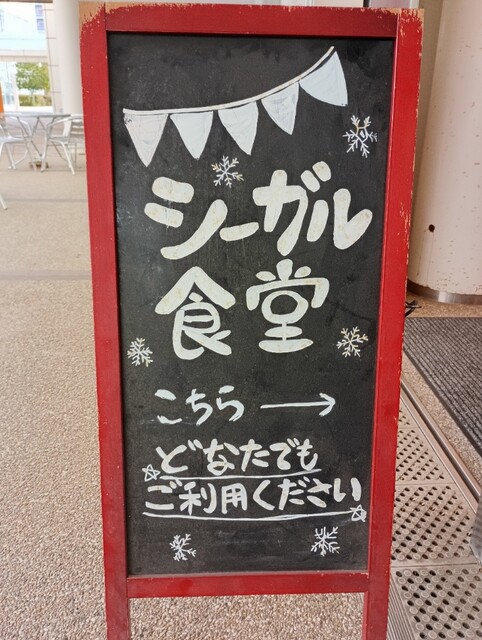 シーガル
食堂
こちら →
どなたでも
ご利用ください